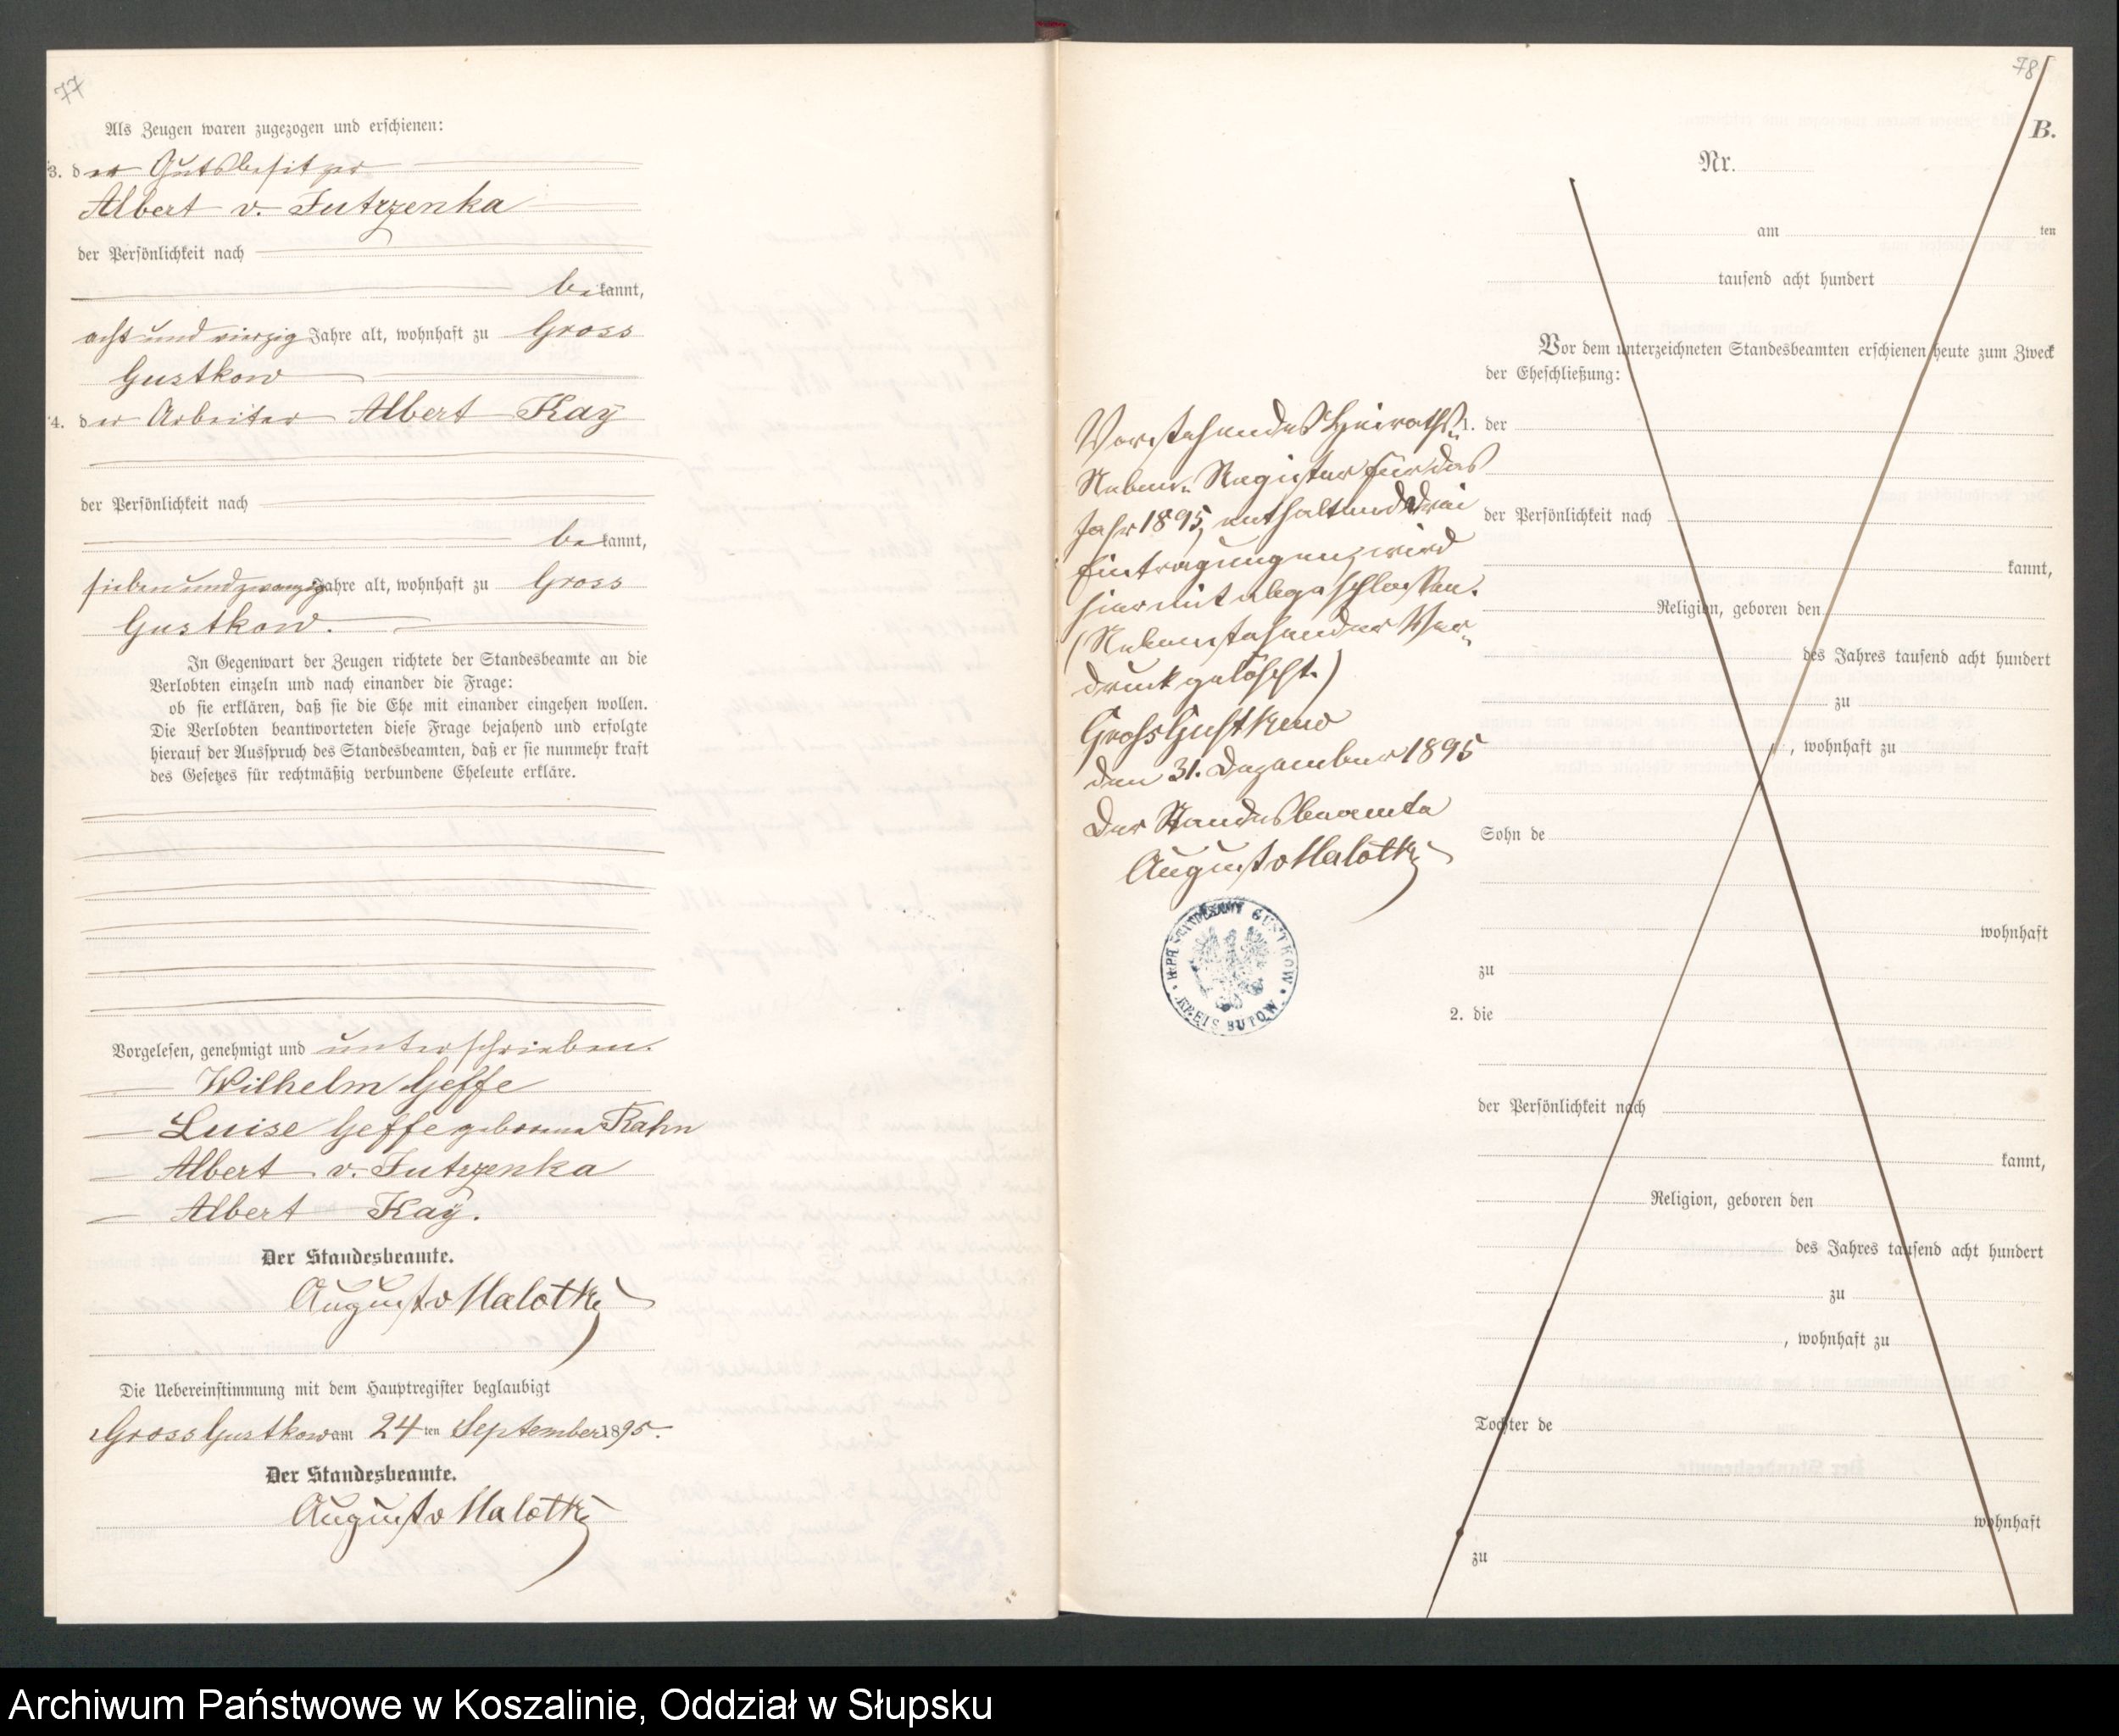 77
Als Zeugen waren zugezogen und erschienen:
3. der Gutsbesitzer
Albert v. Jutrzenka
der Persönlichkeit nach
bekannt,
acht und vierzig Jahre alt, wohnhaft zu Gross
Gustkow
4. der Arbeiter Albert Kaÿ
der Persönlichkeit nach
bekannt,
sieben und zwanzig Jahre alt, wohnhaft zu Gross
Gustkow.
In Gegenwart der Zeugen richtete der Standesbeamte an die
Verlobten einzeln und nach einander die Frage:
ob sie erklären, daß sie die Ehe mit einander eingehen wollen.
Die Verlobten beantworteten diese Frage bejahend und erfolgte
hierauf der Ausspruch des Standesbeamten, daß er sie nunmehr kraft
des Gesetzes für rechtmäßig verbundene Eheleute erkläre.
Vorgelesen, genehmigt und unterschrieben.
Wilhelm Geffe
Luise Geffe geborene Rahn
Albert v. Jutrzenka
Albert Kaÿ.
Der Standesbeamte.
August v Malotki
Die Uebereinstimmung mit dem Hauptregister beglaubigt
Gross Gustkow am 24ten September 1895.
Der Standesbeamte.
August v Malotki
78
B.
Nr.
am ten
tausend acht hundert
Vor dem unterzeichneten Standesbeamten erschienen heute zum Zweck
der Eheschließung:
1. der
der Persönlichkeit nach
kannt,
Religion, geboren den
des Jahres tausend acht hundert
zu
, wohnhaft zu
Sohn de
wohnhaft
zu
2. die
der Persönlichkeit nach
kannt,
Religion, geboren den
des Jahres tausend acht hundert
zu
, wohnhaft zu
Tochter de
wohnhaft
zu
Vorstehendes Heiraths-
Neben-Register für das
Jahr 1895, enthaltend drei
Eintragungen, wird
hiermit abgeschlossen.
(Nebenstehender Vor-
druck gelöscht.)
Gross Gustkow
den 31. Dezember 1895
Der Standesbeamte
August v Malotki
K. PR. STANDESAMT GUSTKOW
KREIS BÜTOW
Archiwum Państwowe w Koszalinie, Oddział w Słupsku